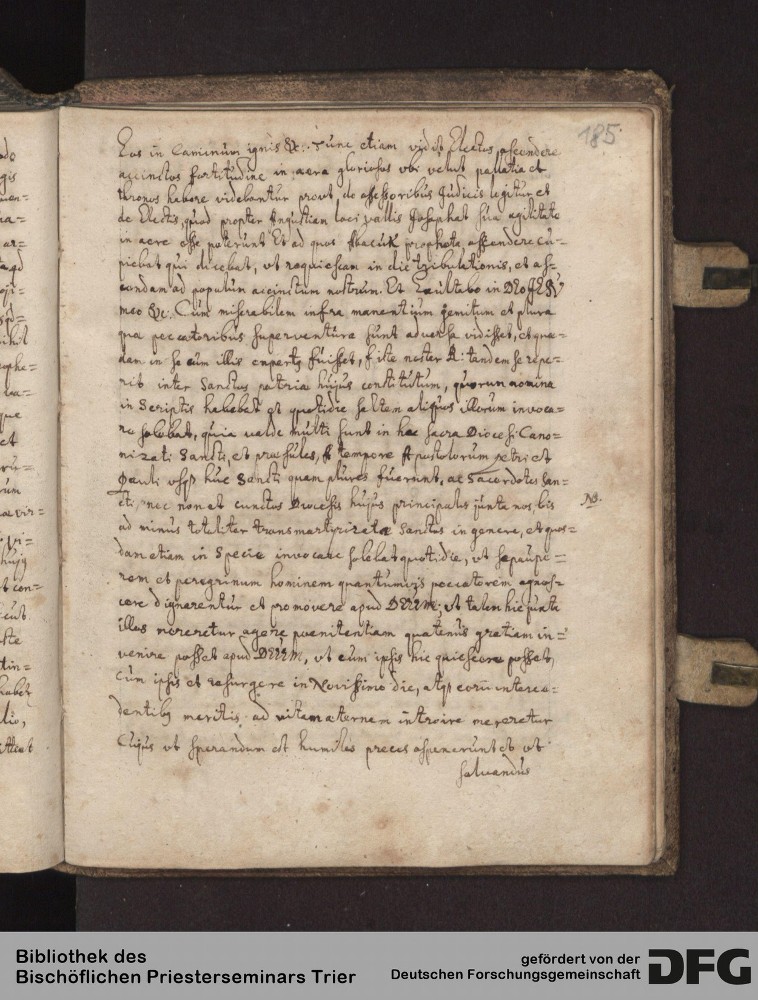 185.
Eos in Caminum ignis &c. Tunc etiam vidit Electus ascendere
accinctos fortitudine in aera gloriosos ubi velut palatia et
thronos habere videbantur prout de assessoribus Judicis legitur et
de Electis, quod propter Angustiam loci vallis Josaphat sua agilitate
in aere esse poterunt Et ad quos Abacuk propheta ascendere cu=
piebat qui dicebat, ut requiescam in die tribulationis, et as=
cendam ad populum accinctum nostrum. Et Exultabo in DEO JESU
meo &c. Cum miserabilem infra manentium gemitum et plura
quae peccatoribus superventura sunt adversa vidisset, et quae=
dam in se cum illis expertus fuisset, iste noster tandem se repe=
rit inter Sanctos patriae hujus constitutum, quorum nomina
in Scriptis habebat et quotidie saltem aliquos illorum invoca=
re solebat, quia valde multi sunt in hac sacra Dioecesi Cano=
nizati Sancti, et praesules, a tempore Apostolorum petri et
Pauli usque huc Sancti quam plures fuerunt, ac Sacerdotes San=
cti, nec non et cunctos Dioecesis hujus principalis juxta nos bis
NB.
ad minus totaliter transmartyrizata Sanctos in genere, et quos=
dam etiam in Specie invocare solebat quotidie, ut se paupe=
rem et peregrinum hominem quantumvis peccatorem agnos=
cere dignarentur et promovere apud DEUM, ut talem hic juxta
illos mereretur agere poenitentiam quatenus gratiam in=
venire posset apud DEUM, ut cum ipsis hic quiescere posset,
Cum ipsis et resurgere in Novissimo die, atque eorum interce=
dentibus meritis ad vitam aeternam introire mereretur
Cujus ut sperandum est humiles preces aspexerunt et ut
salvandus
Bibliothek des
Bischöflichen Priesterseminars Trier
gefördert von der
Deutschen Forschungsgemeinschaft
DFG